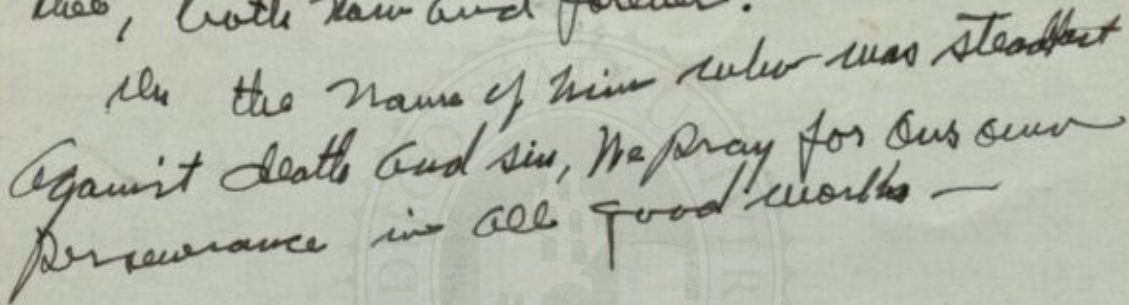 thee, both now and forever.
In the name of him who was steadfast
against death and sin, We pray for our own
perseverance in all good works —